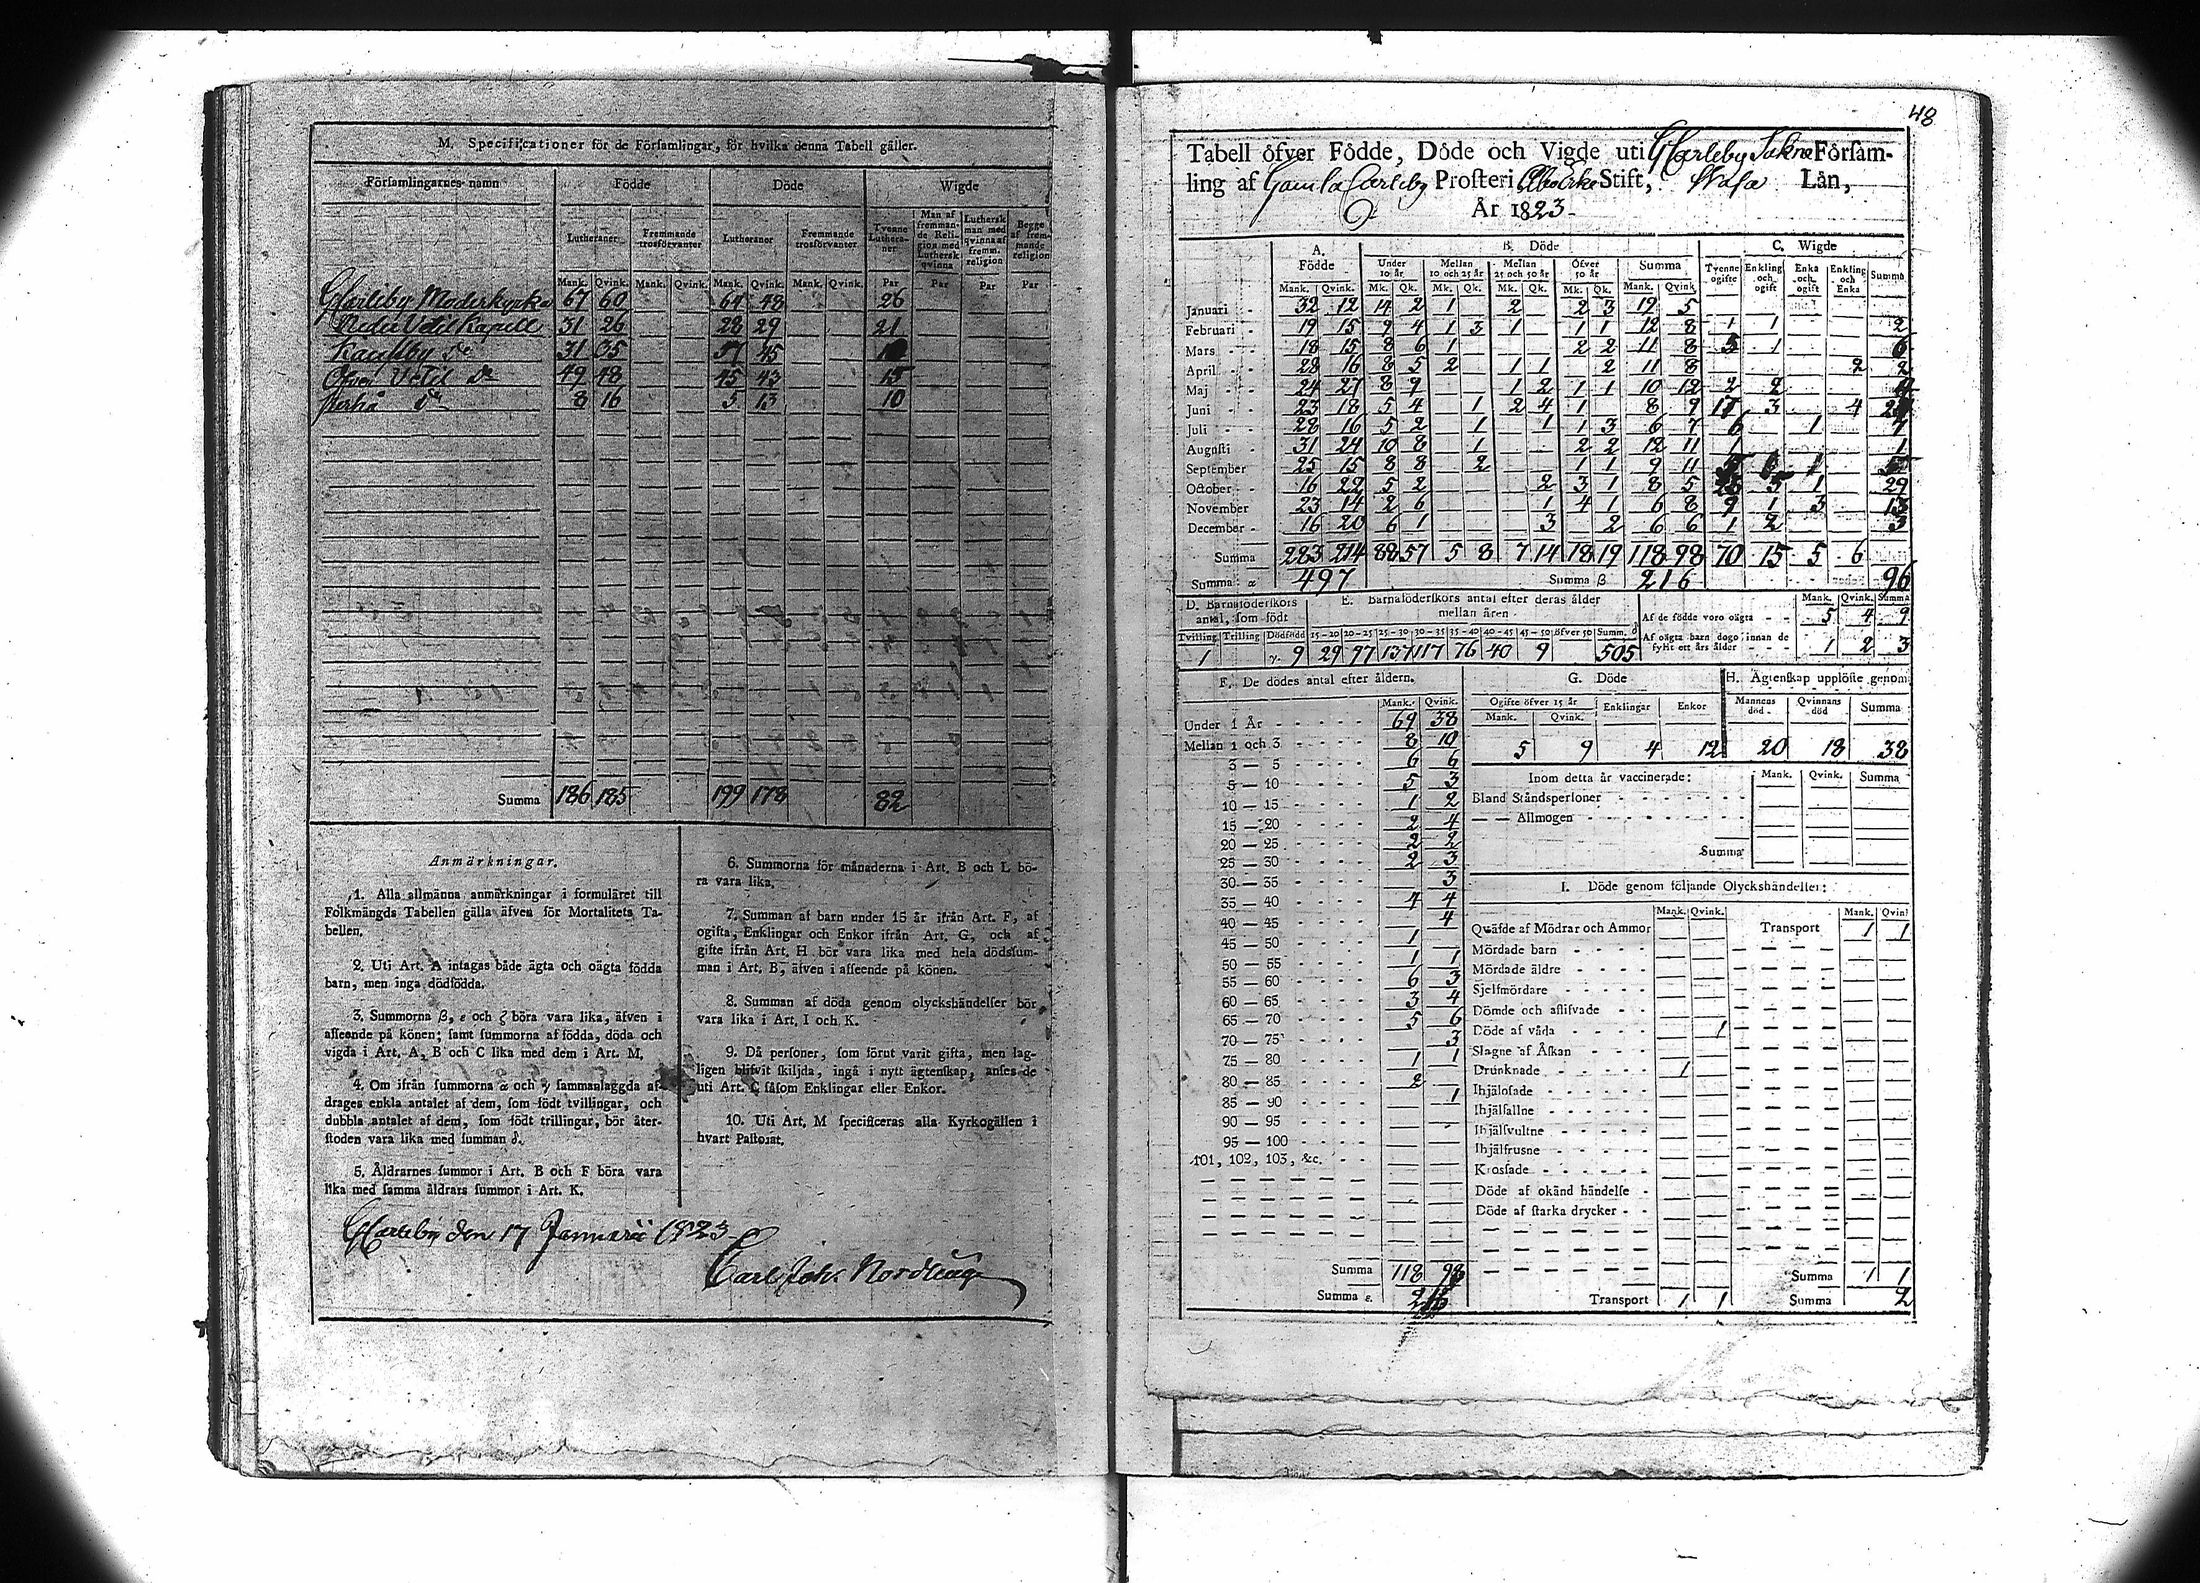 M. Specificationer för de Församlingar, för hvilka denna Tabell gäller.
Församlingarnes namn Födde Döde Wigde
Lutheraner Fremmande trosförvanter Lutheraner Fremmande trosförvanter Tvenne Lutheraner Man af fremmande Religion med Luthersk qvinna Luthersk man med qvinna af fremm. religion Begge af fremmande religion
Mank. Qvink. Mank. Qvink. Mank. Qvink. Mank. Qvink. Par Par Par Par
GCarleby Moderkyrka 67 60 64 48 26
Neder Vetil Kapell 31 26 28 29 21
Kaustby de 31 35 57 45 10
Öfver Vetil de 49 48 45 43 15
Perho de 8 16 5 13 10
Summa 186 185 199 178 82
Anmärkningar.
1. Alla allmänna anmärkningar i formuläret till
Folkmängds Tabellen gälla äfven för Mortalitets Ta-
bellen.
2. Uti Art. A intagas både ägta och oägta födda
barn, men inga dödfödda.
3. Summorna β, ε och ζ böra vara lika, äfven i
afseende på könen; samt summorna af födda, döda och
vigda i Art. A, B och C lika med dem i Art. M.
4. Om ifrån summorna α och γ sammanlaggda af-
drages enkla antalet af dem, som födt tvillingar, och
dubbla antalet af dem, som födt trillingar, bör åter-
stoden vara lika med summan δ.
5. Åldrarnes summor i Art. B och F böra vara
lika med samma åldrars summor i Art. K.
6. Summorna för månaderna i Art. B och L bö-
ra vara lika.
7. Summan af barn under 15 år ifrån Art. F, af
ogifta, Enklingar och Enkor ifrån Art. G, och af
gifte ifrån Art. H bör vara lika med hela dödssum-
man i Art. B, äfven i afseende på könen.
8. Summan af döda genom olyckshändelser bör
vara lika i Art. I och K.
9. Då personer, som förut varit gifta, men lag-
ligen blifvit skiljda, ingå i nytt ägtenskap, anses de
uti Art. C såsom Enklingar eller Enkor.
10. Uti Art. M specificeras alla Kyrkogällen i
hvart Pastorat.
GCarleby den 17 Januarii 1823
Carl Joh. Nordlung
48
Tabell öfver Födde, Döde och Vigde uti GCarleby Sokne Försam-
ling af Gamla Carleby Prosteri Åbo Erke Stift, Wasa Län,
År 1823
A. Födde B. Döde C. Wigde
Under 10 år Mellan 10 och 25 år Mellan 25 och 50 år Öfver 50 år Summa Tvenne ogifte Enkling och ogift Enka och ogift Enkling och Enka Summa
Mank. Qvink. Mk. Qk. Mk. Qk. Mk. Qk. Mk. Qk. Mank. Qvink
Januari 32 12 14 2 1 2 2 3 19 5
Februari 19 15 9 4 1 3 1 1 1 12 8 1 1 2
Mars 18 15 8 6 1 2 2 11 8 5 1 6
April 28 16 8 5 2 1 1 2 11 8 2 2
Maj 24 27 8 9 1 2 1 1 10 12 2 2 4
Juni 23 18 5 4 1 2 4 1 8 9 17 3 4
Juli 28 16 5 2 1 1 1 3 6 7 6 1 7
Augusti 31 24 10 8 1 2 2 12 11 1 1
September 25 15 8 8 2 1 1 9 11 1
October 16 22 5 2 2 3 1 8 5 5 1 29
November 23 14 2 6 1 4 1 6 8 9 1 3 13
December 16 20 6 1 3 2 6 6 1 2 3
Summa 283 214 88 57 5 8 7 14 18 19 118 98 70 15 5 6
Summa α 497 Summa β 216 96
D. Barnaföderskors antal, som födt
Tvilling Trilling Dödfödd
1 γ. 9
E. Barnaföderskors antal efter deras ålder mellan åren
15-20 20-25 25-30 30-35 35-40 40-45 45-50 öfver 50 Summ. δ
29 97 137 117 76 40 9 505
Mank. Qvink. Summa
Af de födde voro oägta 5 4 9
Af oägta barn dogo innan de
fyllt ett års ålder 1 2 3
F. De dödes antal efter åldern.
Mank. Qvink.
Under 1 År 69 38
Mellan 1 och 3 8 10
3 — 5 6 6
5 — 10 5 3
10 — 15 1 2
15 — 20 2 4
20 — 25 2 2
25 — 30 2 3
30 — 35 3
35 — 40 4 4
40 — 45 4
45 — 50 1
50 — 55 1 1
55 — 60 6 3
60 — 65 3 4
65 — 70 5 6
70 — 75 3
75 — 80 1 1
80 — 85 2
85 — 90 1
90 — 95
95 — 100
101, 102, 103, &c.
Summa 118 98
Summa ε. 216
G. Döde
Ogifte öfver 15 år Enklingar Enkor
Mank. Qvink.
5 9 4 12
H. Ägtenskap upplöste genom
Mannens död Qvinnans död Summa
20 18 38
Inom detta år vaccinerade: Mank. Qvink. Summa
Bland Ståndspersoner
— — Allmogen
Summa
I. Döde genom följande Olyckshändelser:
Mank. Qvink. Mank. Qvink
Qväfde af Mödrar och Ammor Transport 1 1
Mördade barn
Mördade äldre
Sjelfmördare
Dömde och aflifvade
Döde af våda 1
Slagne af Åskan
Drunknade 1
Ihjälosade
Ihjälfallne
Ihjälsvultne
Ihjälfrusne
Krossade
Döde af okänd händelse
Döde af starka drycker
Summa 1 1
Transport 1 1 Summa 2